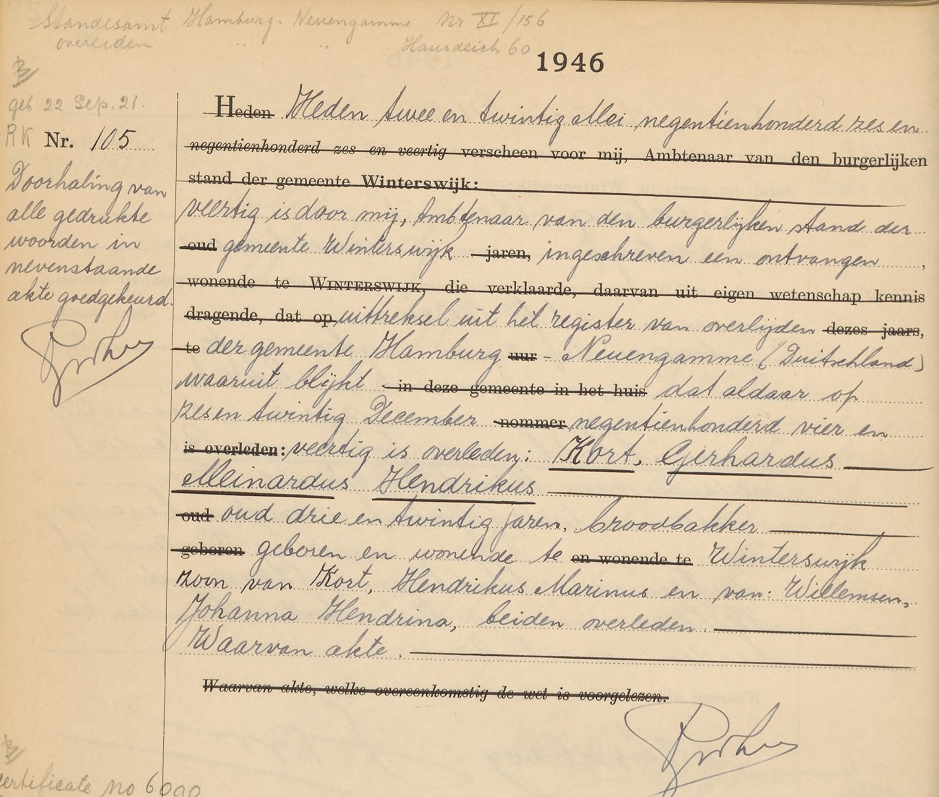 Standesamt Hamburg-Neuengamme Nr XI/156
overleden " " Hausdeich 60
1946
geb 22 Sep. 21.
RK Nr. 105
Doorhaling van
alle gedrukte
woorden in
nevenstaande
akte goedgekeurd.
Heden Heden twee en twintig Mei negentienhonderd zes en
negentienhonderd zes en veertig verscheen voor mij, Ambtenaar van den burgerlijken
stand der gemeente Winterswijk:
veertig is door mij, Ambtenaar van den burgerlijken stand der
oud gemeente Winterswijk jaren, ingeschreven een ontvangen ,
wonende te WINTERSWIJK, die verklaarde, daarvan uit eigen wetenschap kennis
dragende, dat op, uittreksel uit het register van overlijden dezes jaars,
te der gemeente Hamburg uur - Neuengamme (Duitschland)
waaruit blijkt in deze gemeente in het huis dat aldaar op
zes en twintig December nommer negentienhonderd vier en
is overleden: veertig is overleden: Kort, Gerhardus
Meinardus Hendrikus
oud oud drie en twintig jaren, broodbakker
geboren geboren en wonende te en wonende te Winterswijk
zoon van Kort, Hendrikus Marinus en van: Willemsen,
Johanna Hendrina, beiden overleden.
Waarvan akte.
Waarvan akte, welke overeenkomstig de wet is voorgelezen.
certificate no 6090